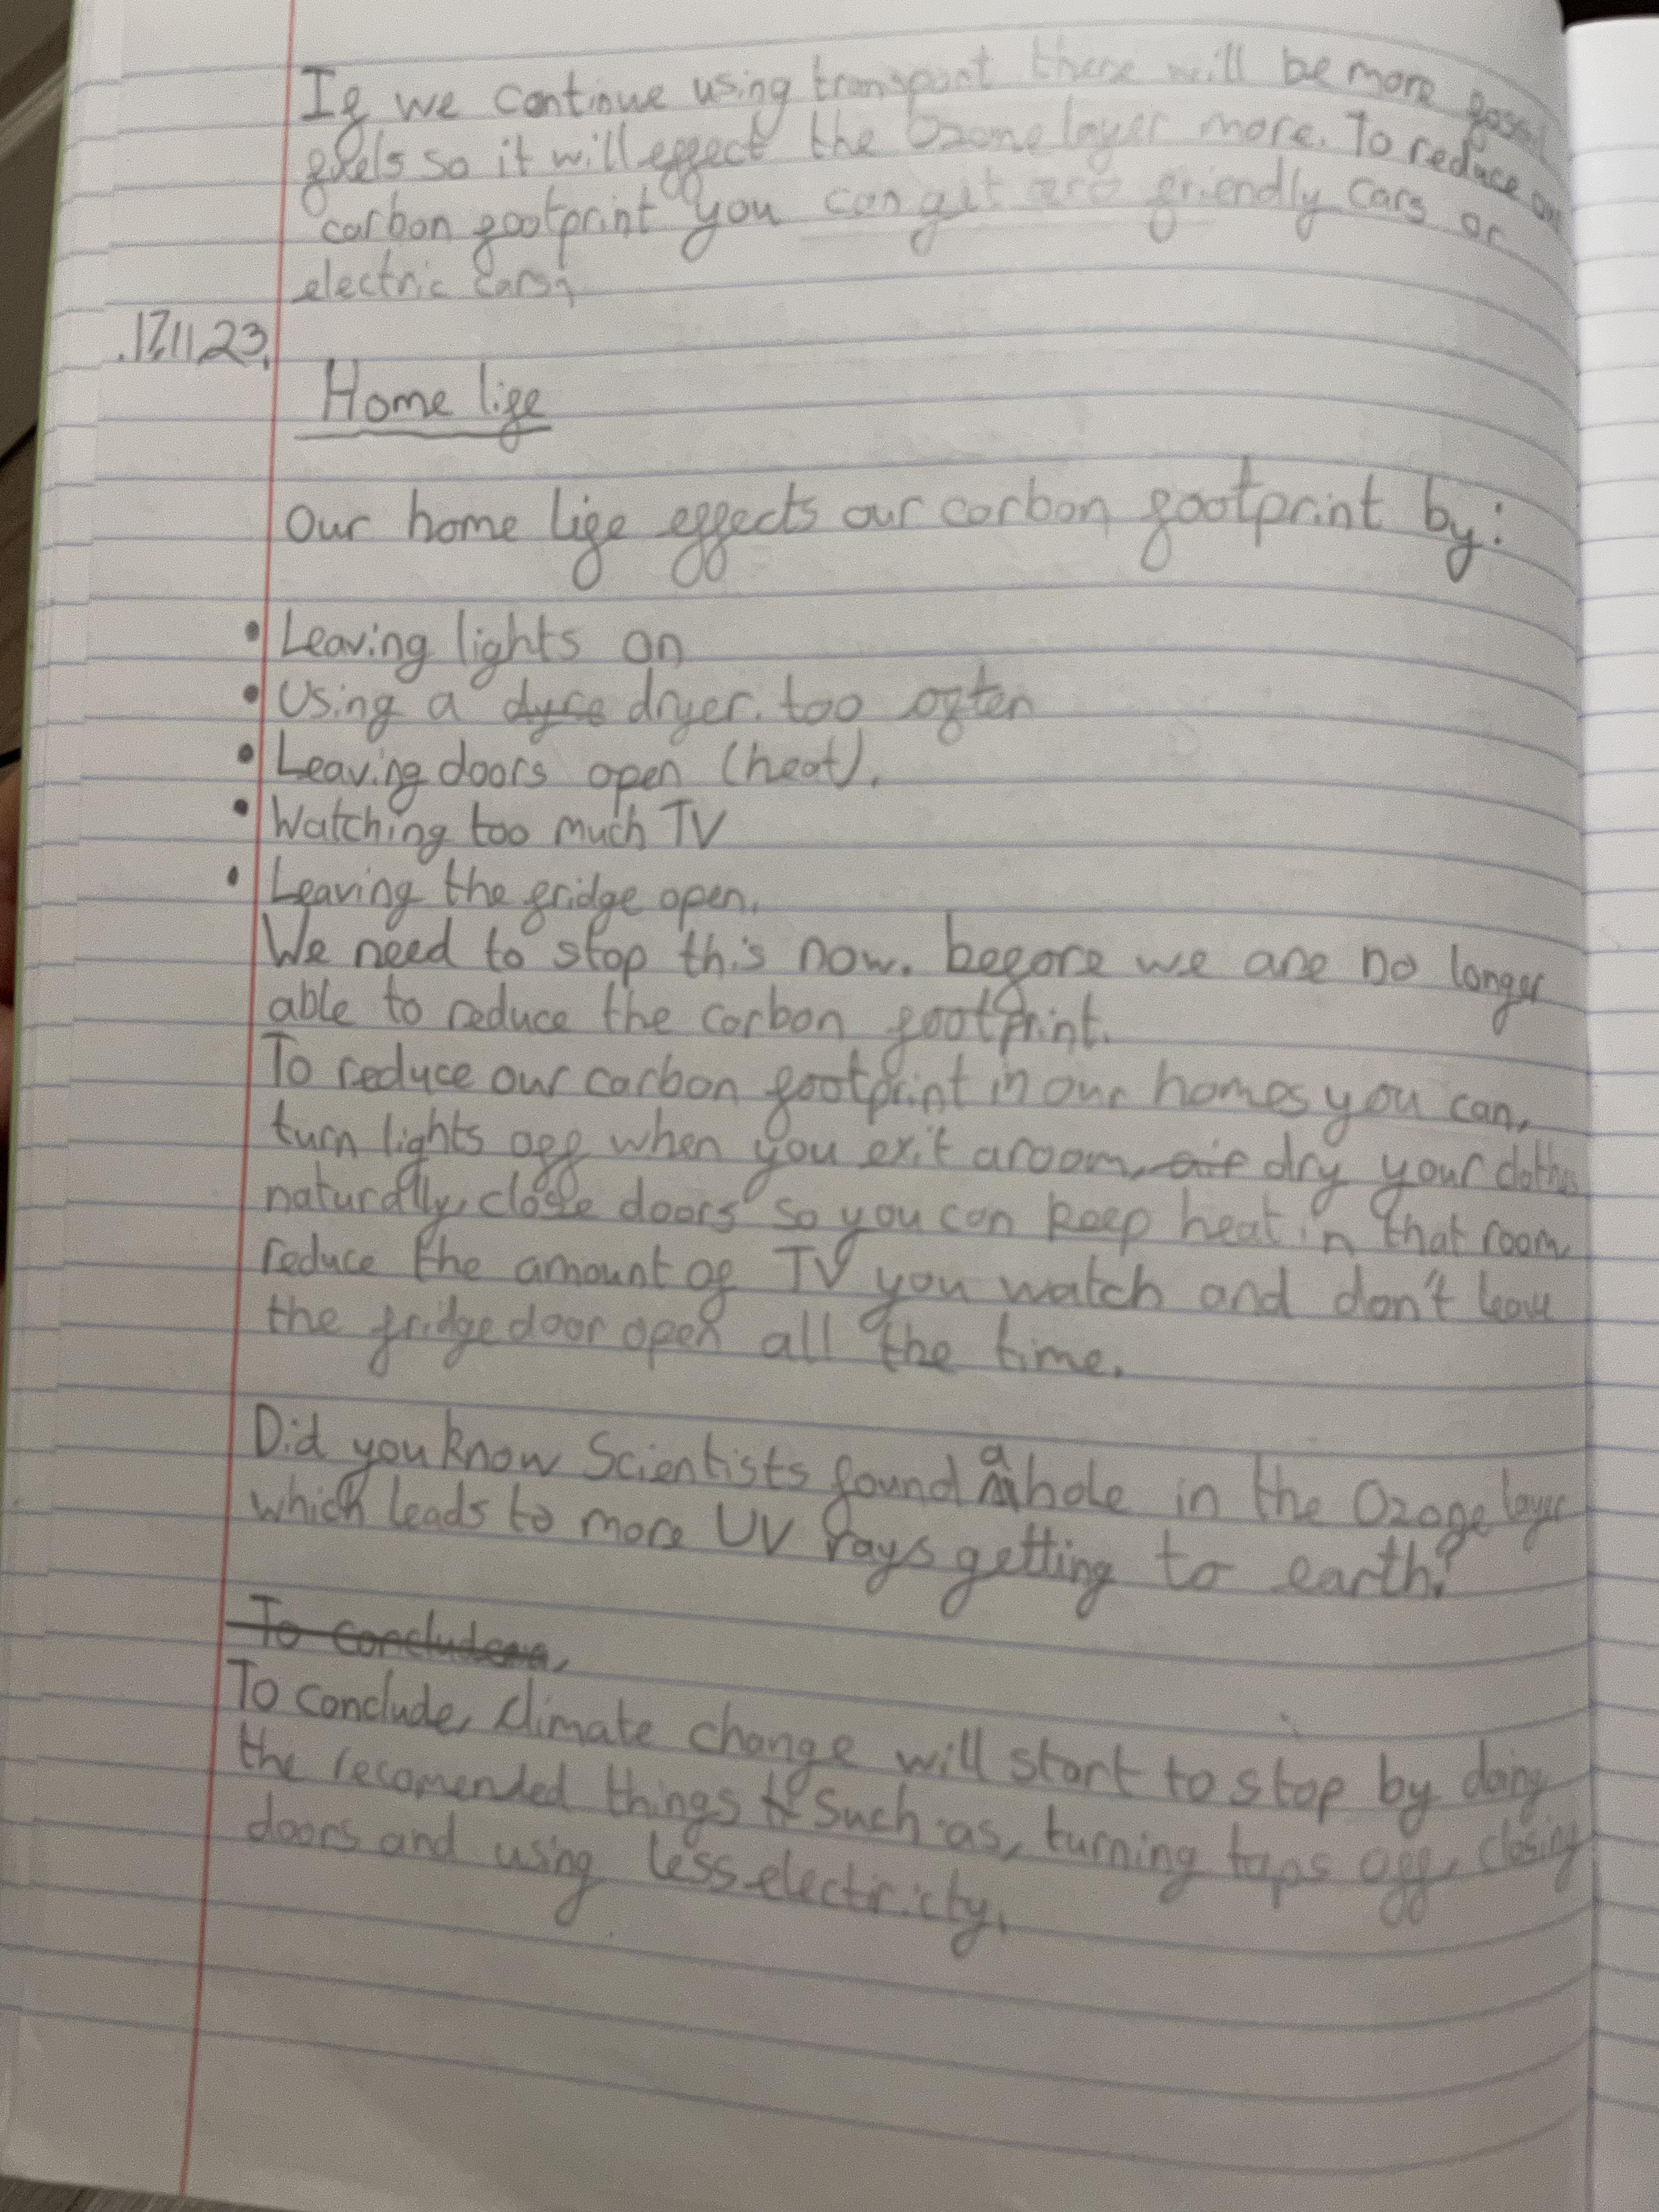 If we continue using transport there will be more fossil
fuels so it will effect the Ozone layer more. To reduce our
carbon footprint you can get friendly cars or
electric cars.
17.11.23.
Home life
Our home life effects our carbon footprint by:
• Leaving lights on
• Using a dyre dryer. too often
• Leaving doors open (heat).
• Watching too much TV
• Leaving the fridge open.
We need to stop this now. before we are no longer
able to reduce the carbon footprint.
To reduce our carbon footprint in our homes you can,
turn lights off when you exit a room, air dry your clothes
naturally, close doors so you can keep heat in that room,
reduce the amount of TV you watch and don't leave
the fridge door open all the time.
Did you know Scientists found a hole in the Ozone layer
which leads to more UV rays getting to earth?
To
To conclude, climate change will start to stop by doing
the recomended things Such as, turning taps off, closing
doors and using less electiricty.